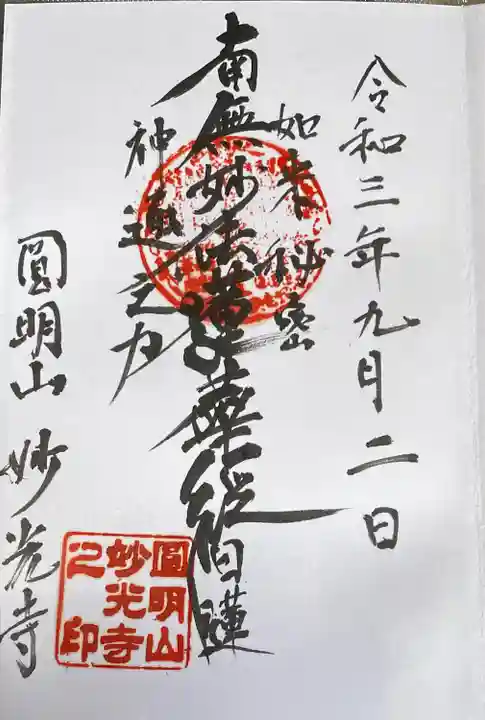 令和三年九月二日
如来秘密
南無妙法蓮華経日蓮
神通之力
圓明山妙光寺
圓明山
妙光寺
之印